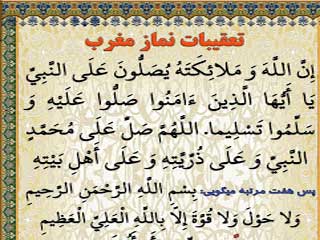 تعقیبات نماز مغرب
إِنَّ اللَّهَ وَ مَلَائِكَتَهُ يُصَلُّونَ عَلَى النَّبِيِّ
يَا أَيُّهَا الَّذِينَ ءَامَنُوا صَلُّوا عَلَيْهِ وَ
سَلِّمُوا تَسْلِيما. اللَّهُمَّ صَلِّ عَلَى مُحَمَّدٍ
النَّبِيِّ وَ عَلَى ذُرِّيَّتِهِ وَ عَلَى أَهْلِ بَيْتِهِ
پس هفت مرتبه میگویی: بِسْمِ اللَّهِ الرَّحْمَنِ الرَّحِيمِ
وَلا حَوْلَ وَلا قُوَّةَ إِلاَّ بِاللَّهِ الْعَلِيِّ الْعَظِيمِ